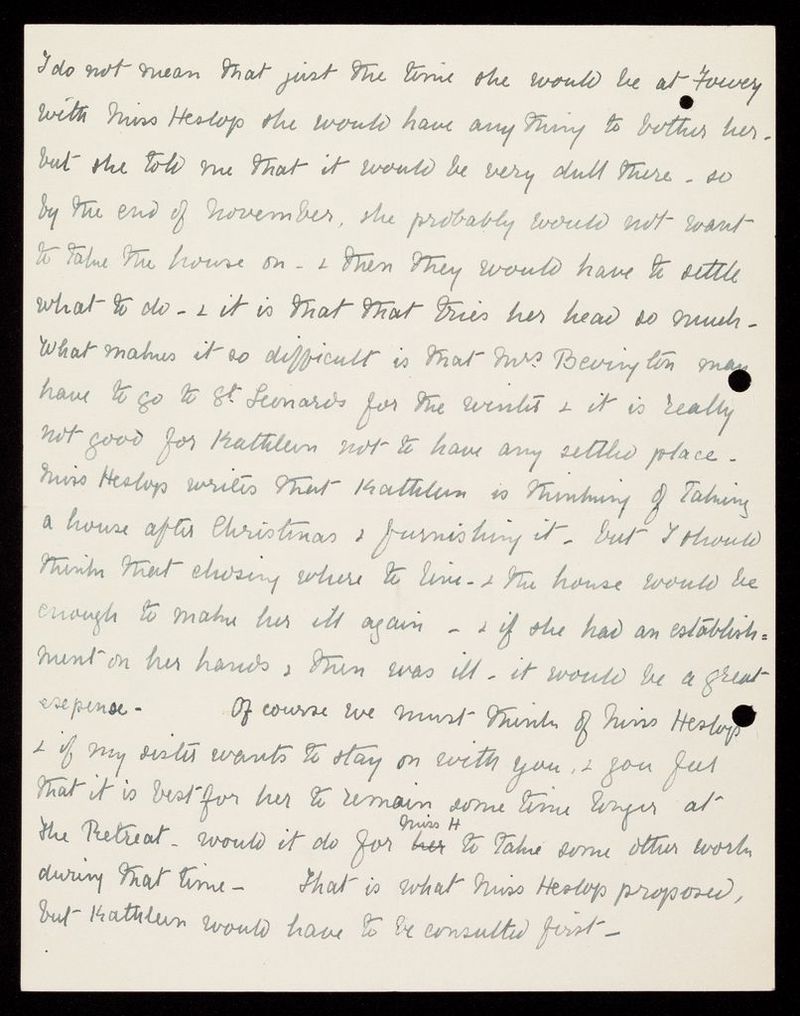 I do not mean that just the time she would be at Fowey
with Miss Heslop she would have any thing to bother her -
but she told me that it would be very dull there - so
by the end of November, she probably would not want
to take the house on - & then they would have to settle
what to do - & it is that that tries her head so much -
What makes it so difficult is that Mrs Bevington may
have to go to St Leonards for the winter & it is really
not good for Kathleen not to have any settled place -
Miss Heslop writes that Kathleen is thinking of taking
a house after Christmas & furnishing it - but I should
think that chosing where to live - & the house would be
enough to make her ill again - & if she had an establish=
ment on her hands & then was ill - it would be a great
expense - Of course we must think of Miss Heslop
& if my sister wants to stay on with you, & you feel
that it is best for her to remain some time longer at
the Retreat - would it do for her Miss H to take some other work
during that time - That is what Miss Heslop proposed,
but Kathleen would have to be consulted first -